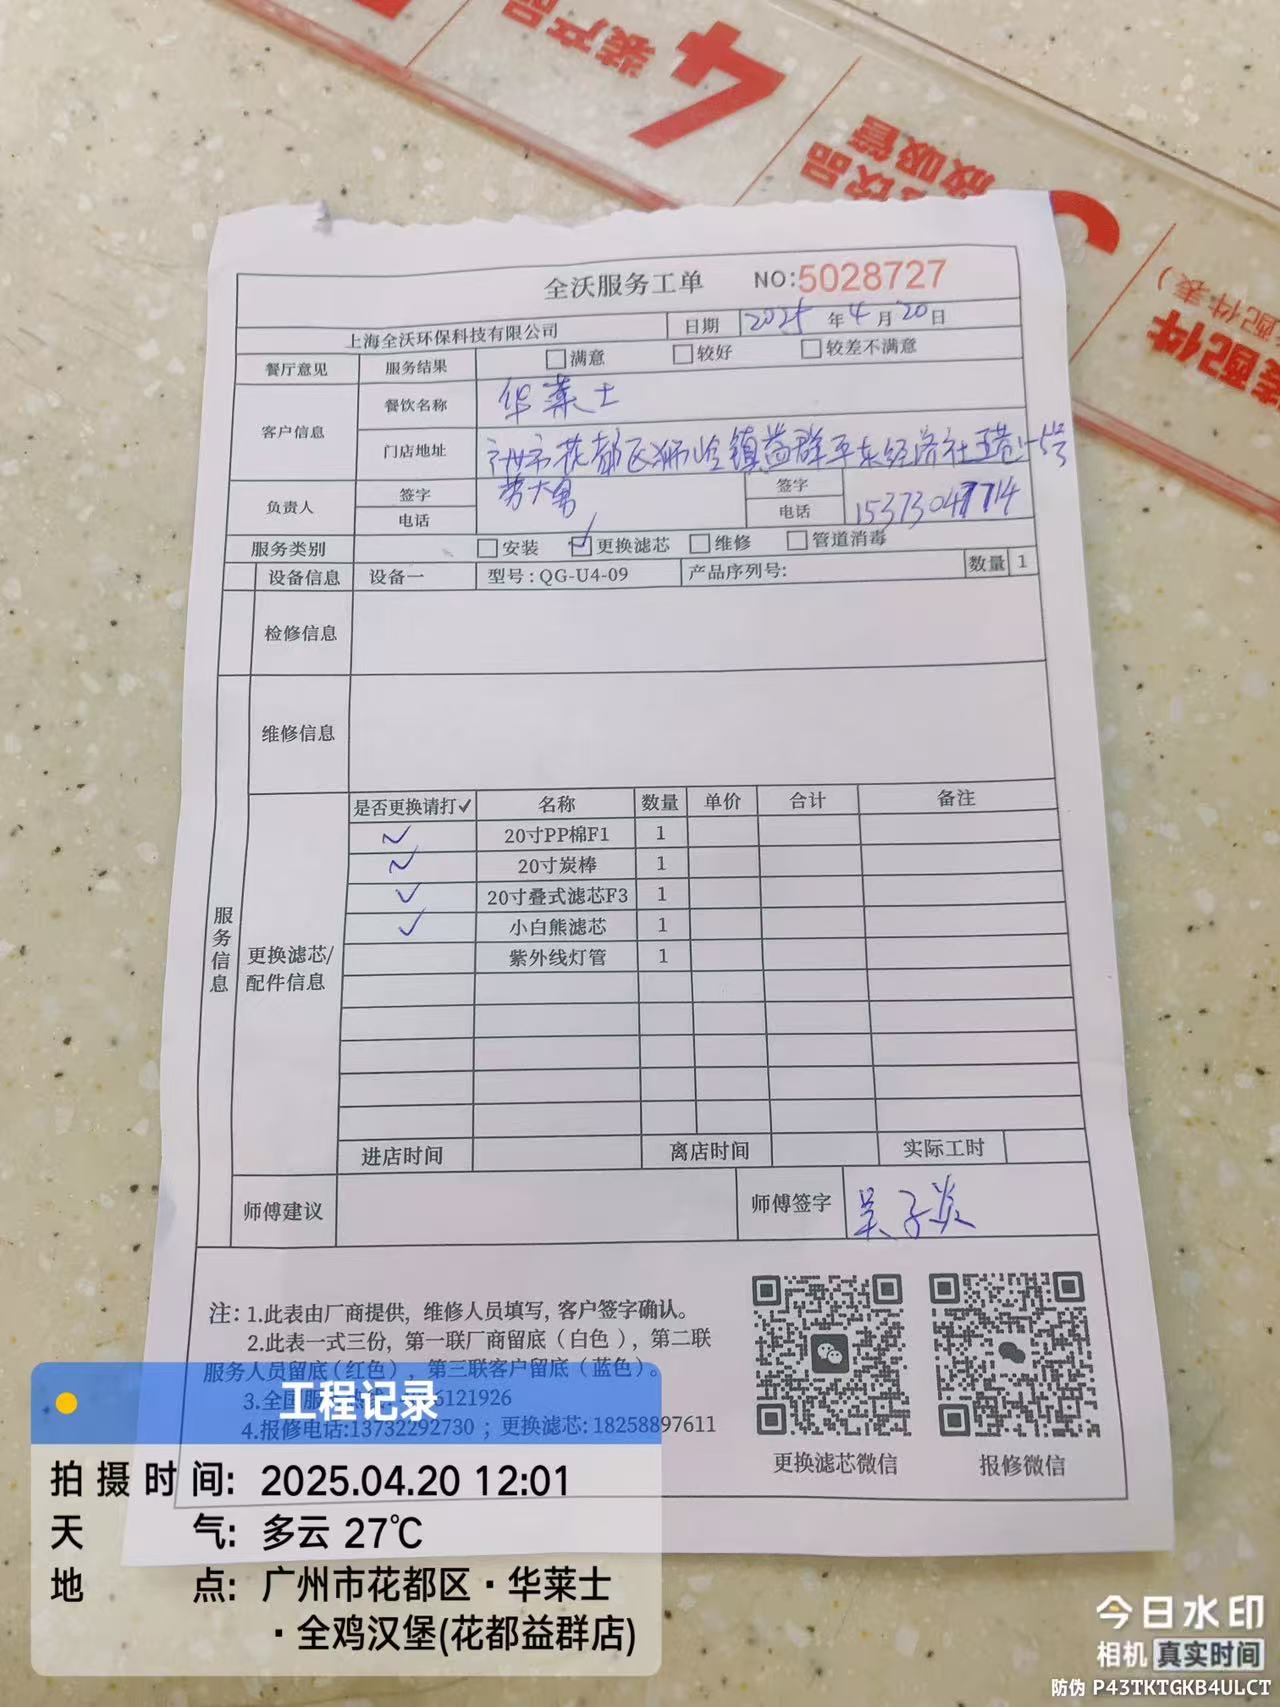 装产品
4
饮品
吸管
配件表)
装配件
全沃服务工单 NO:5028727
上海全沃环保科技有限公司 日期 2025年4月20日
餐厅意见 服务结果 满意 较好 较差不满意
客户信息 餐饮名称 华莱士
门店地址 广州市花都区狮岭镇益群平东经济社
负责人 签字 签字
电话 电话 15373047714
服务类别 安装 更换滤芯 维修 管道消毒
设备信息 设备一 型号:QG-U4-09 产品序列号: 数量 1
检修信息
维修信息
服务信息
更换滤芯/
配件信息
是否更换请打✓ 名称 数量 单价 合计 备注
✓ 20寸PP棉F1 1
✓ 20寸炭棒 1
✓ 20寸叠式滤芯F3 1
✓ 小白熊滤芯 1
紫外线灯管 1
进店时间 离店时间 实际工时
师傅建议 师傅签字 吴子炎
注:1.此表由厂商提供,维修人员填写,客户签字确认。
2.此表一式三份,第一联厂商留底(白色),第二联
服务人员留底(红色),第三联客户留底(蓝色)。
3.全国服 6121926
4.报修电话:13732292730;更换滤芯:18258897611
更换滤芯微信 报修微信
工程记录
拍摄时间: 2025.04.20 12:01
天气: 多云 27℃
地点: 广州市花都区·华莱士
·全鸡汉堡(花都益群店)
今日水印
相机 真实时间
防伪 P43TKTGKB4ULCT